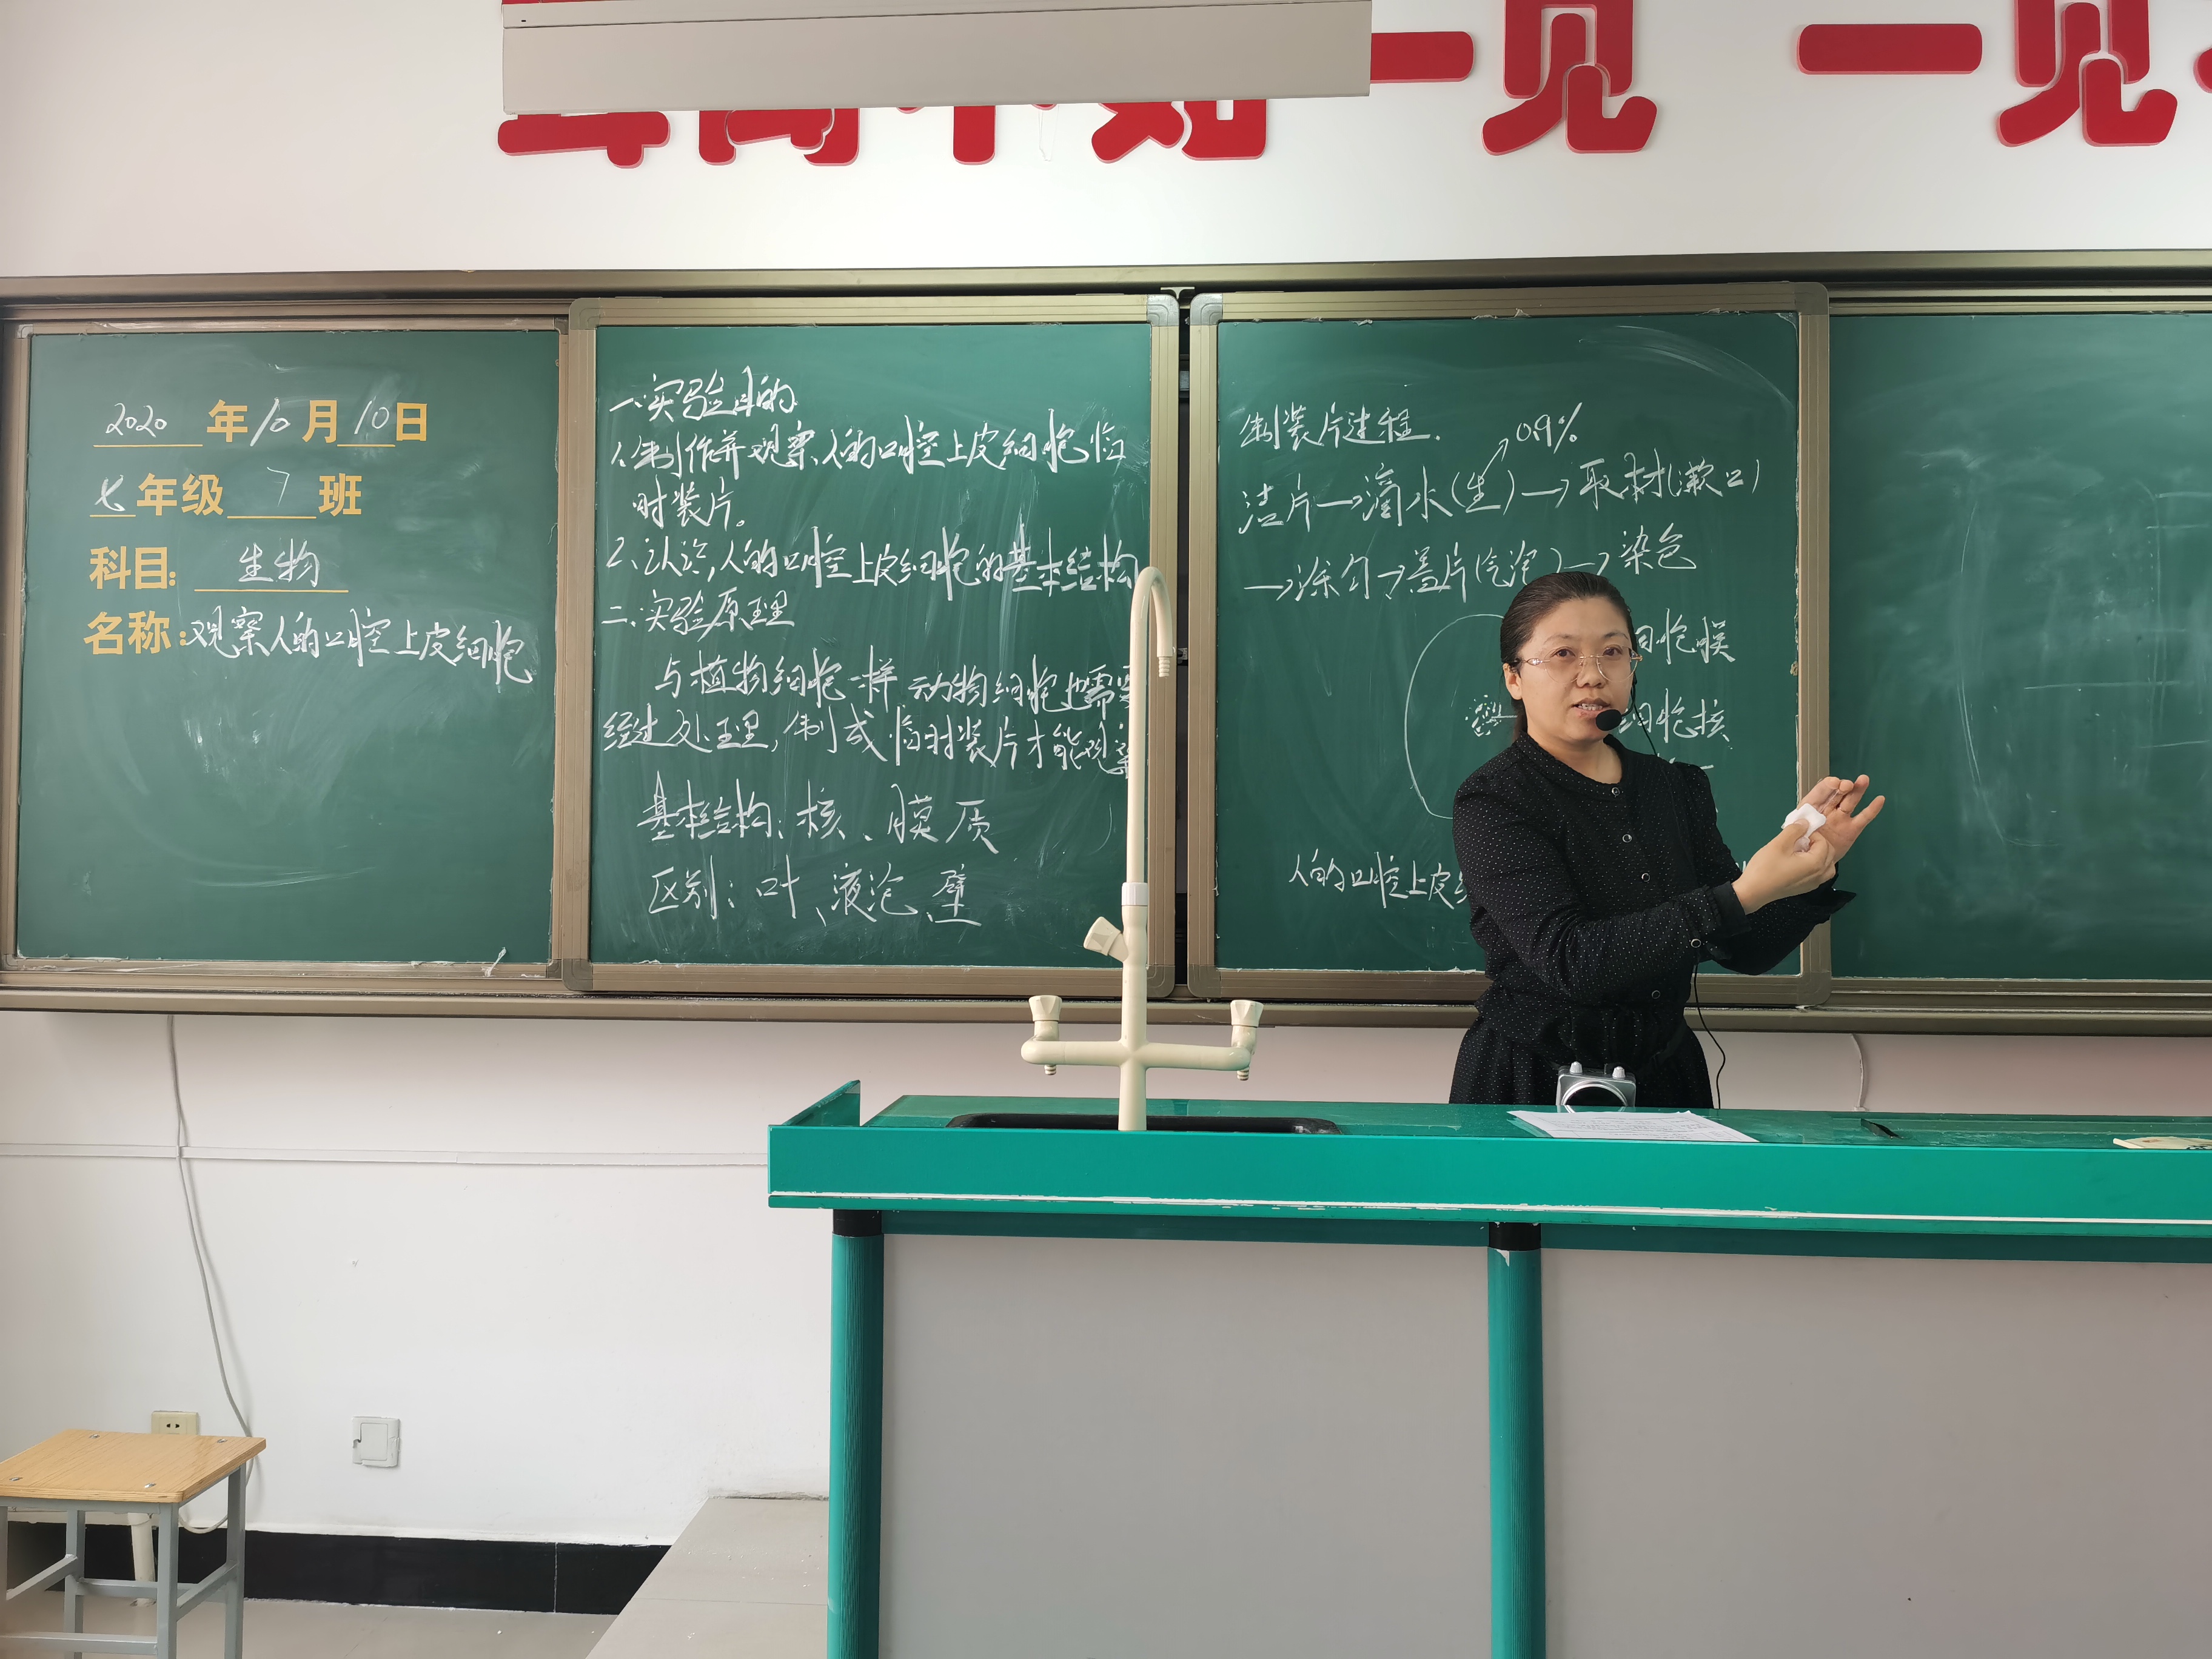 一见
一见
2020年10月10日
七年级 7 班
科目: 生物
名称:观察人的口腔上皮细胞
一、实验目的
1、制作并观察人的口腔上皮细胞临
时装片。
2、认识人的口腔上皮细胞的基本结构
二、实验原理
与植物细胞一样 动物细胞也需要
经过处理,制成临时装片才能观察
基本结构: 核、膜 质
区别: 叶、液泡、壁
制装片过程.
0.9%
洁片→滴水(生)→取材(漱口)
→涂匀→盖片(气泡)→染色
胞膜
细胞核
人的口腔上皮